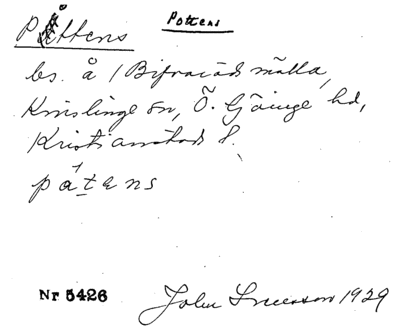 Påttens Pottens
bs. å 1 Bifrostads mölla,
Knislinge sn, Ö. Göinge hd,
Kristianstads l.
påtens
Nr 5426 John 1929